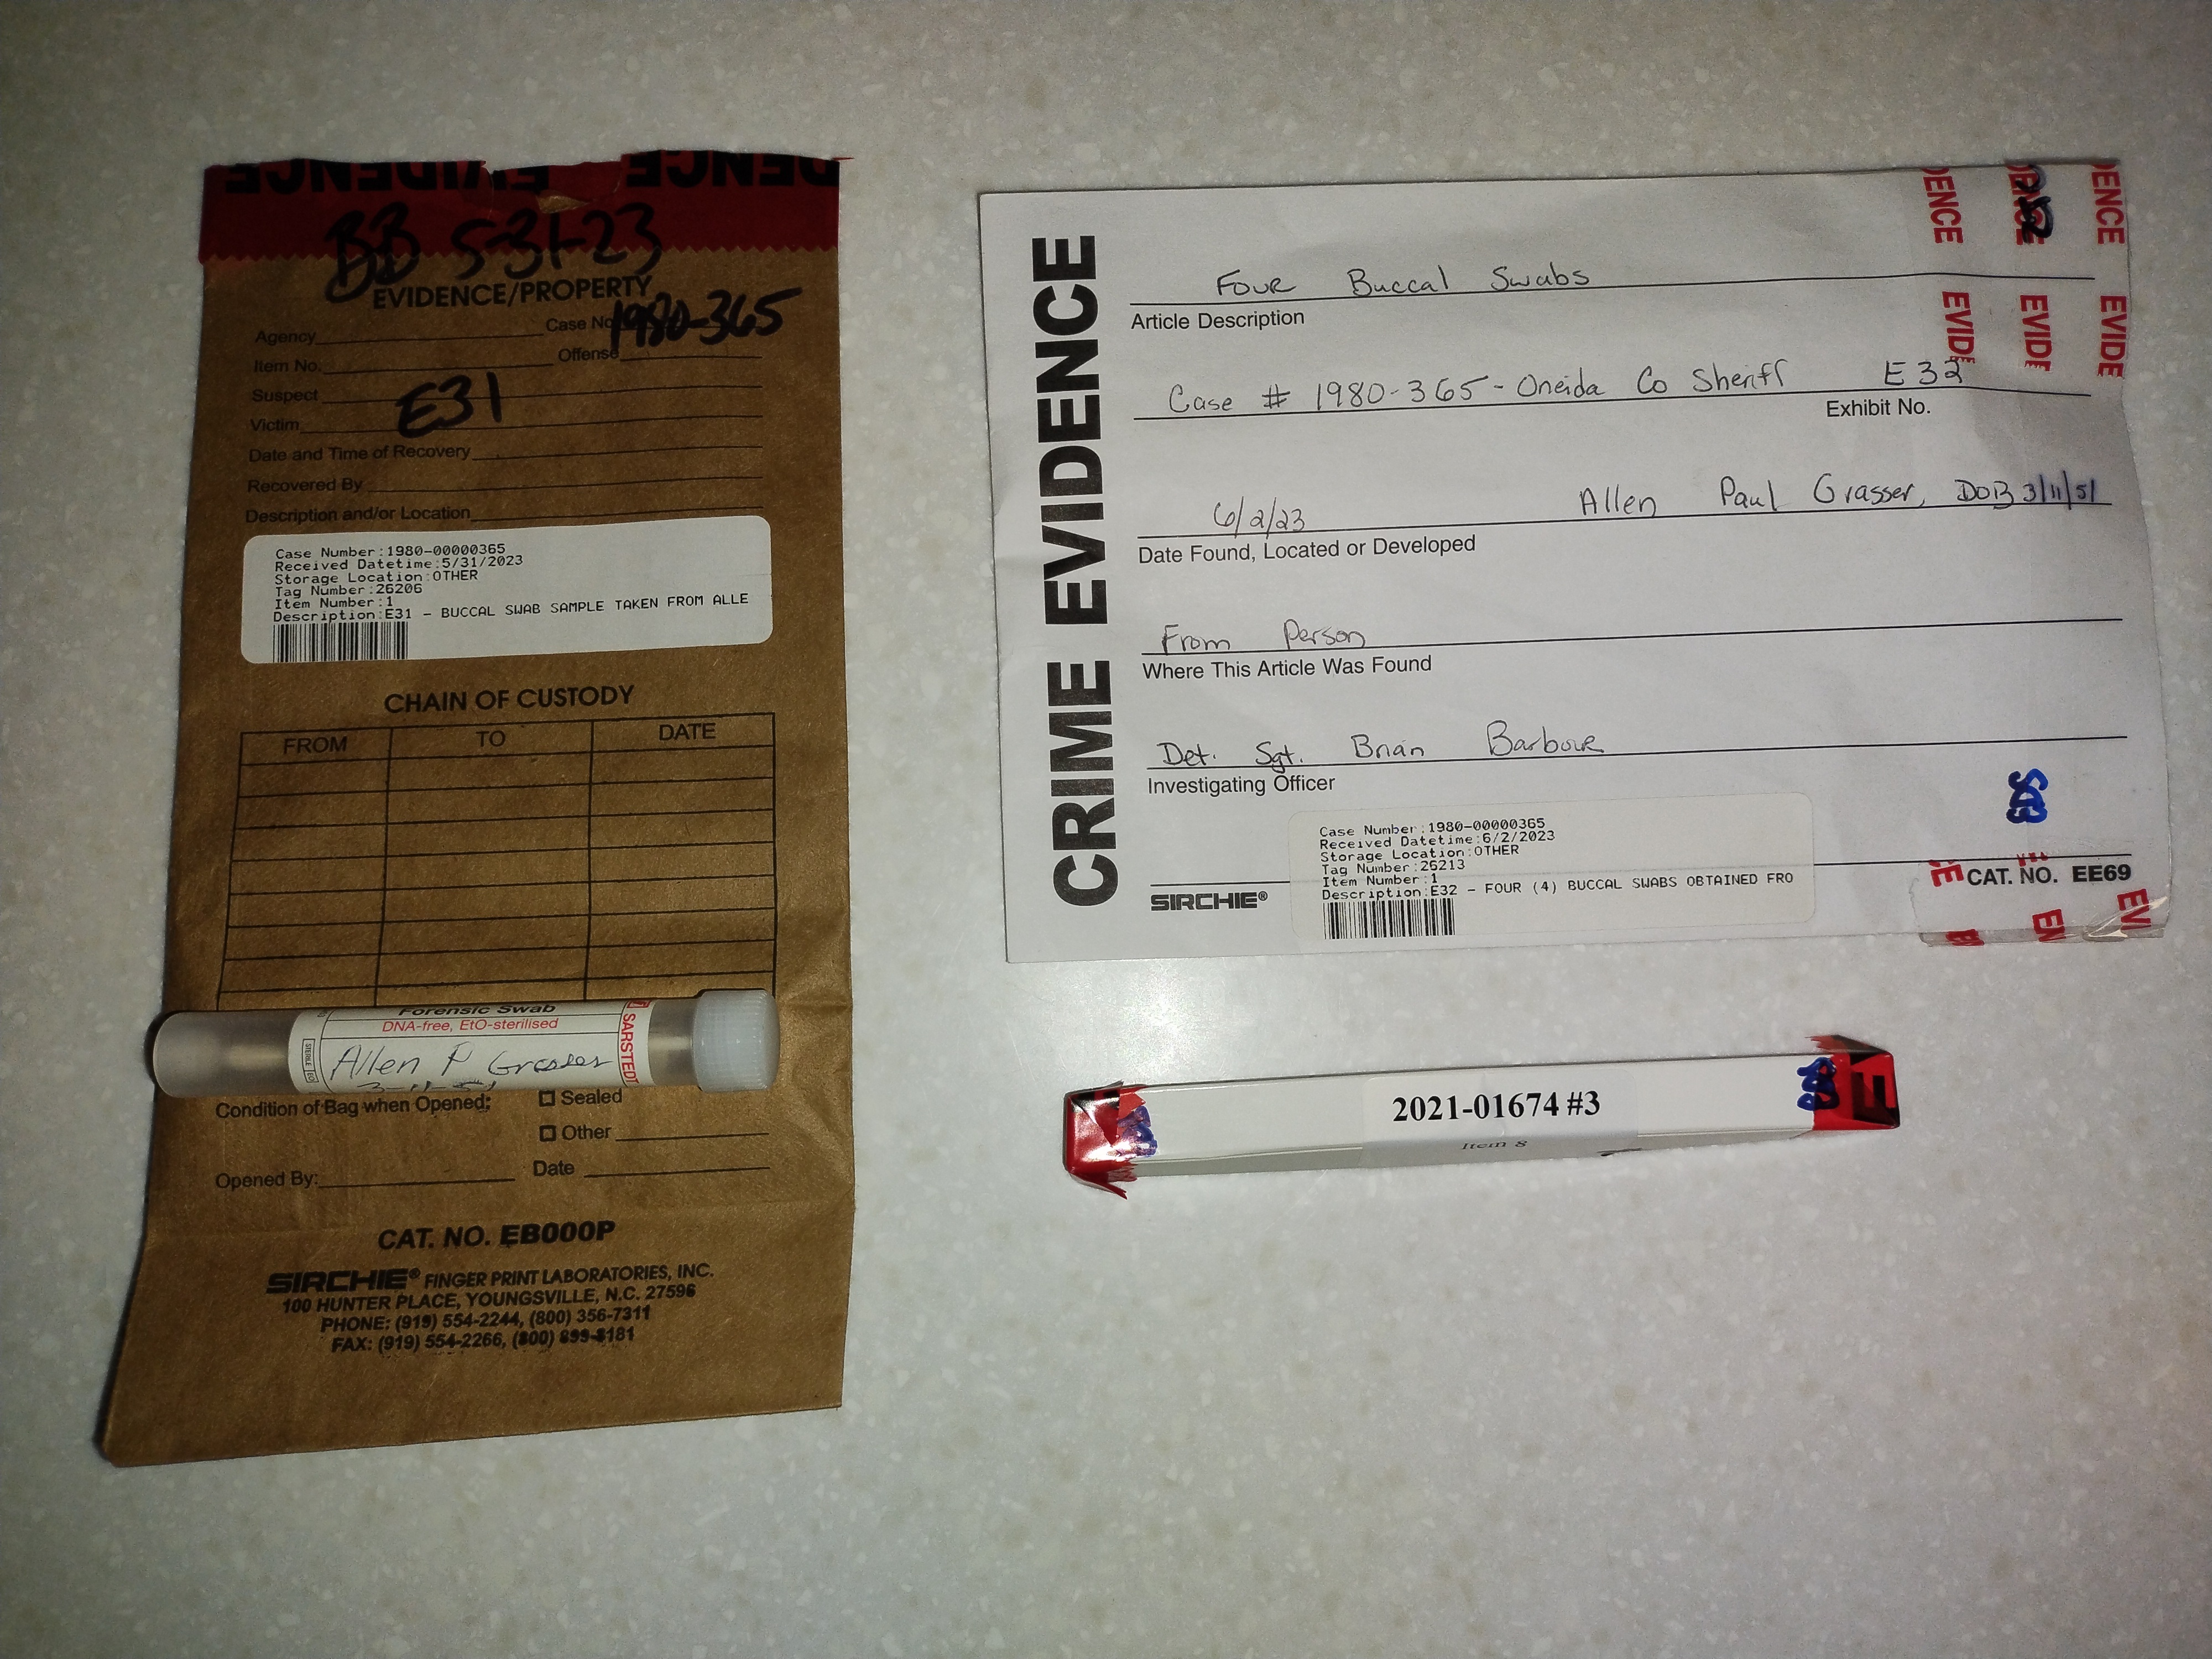 EVIDENCE
BB 5-31-23
EVIDENCE/PROPERTY
Agency
Case No. 1980-365
Item No.
Offense
Suspect
E31
Victim
Date and Time of Recovery
Recovered By
Description and/or Location
Case Number:1980-00000365
Received Datetime:5/31/2023
Storage Location:OTHER
Tag Number:26206
Item Number:1
Description:E31 - BUCCAL SWAB SAMPLE TAKEN FROM ALLE
CHAIN OF CUSTODY
FROM TO DATE
Forensic Swab
DNA-free, EtO-sterilised
SARSTEDT
Allen P Grasser
3-11-51
Condition of Bag when Opened:
Sealed
Other
Opened By:
Date
CAT. NO. EB000P
SIRCHIE® FINGER PRINT LABORATORIES, INC.
100 HUNTER PLACE, YOUNGSVILLE, N.C. 27596
PHONE: (919) 554-2244, (800) 356-7311
FAX: (919) 554-2266, (800) 899-8181
CRIME EVIDENCE
Four Buccal Swabs
Article Description
Case # 1980-365-Oneida Co Sheriff E32
Exhibit No.
6/2/23 Allen Paul Grasser, DOB 3/11/51
Date Found, Located or Developed
From Person
Where This Article Was Found
Det. Sgt. Brian Barbour
Investigating Officer
Case Number:1980-00000365
Received Datetime:6/2/2023
Storage Location:OTHER
Tag Number:26213
Item Number:1
Description:E32 - FOUR (4) BUCCAL SWABS OBTAINED FRO
SIRCHIE®
CAT. NO. EE69
2021-01674 #3
Item 8